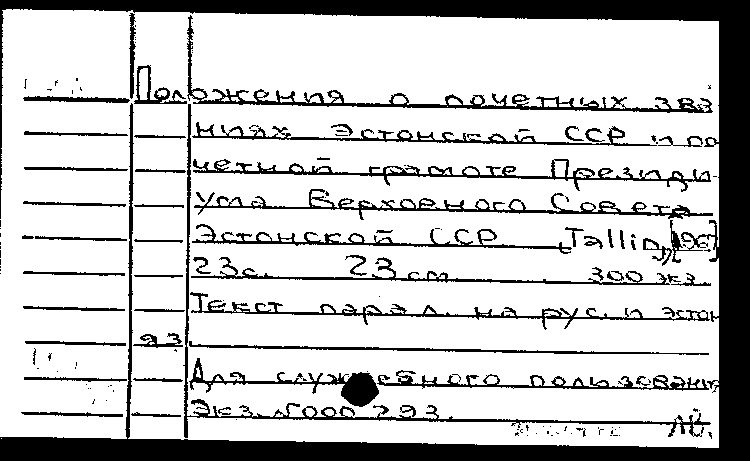 Положения о почетных зва
ниях Эстонской ССР и по
четной грамоте Президи
ума Верховного Совета
Эстонской ССР Tallin, [196
23с. 23 см 300 экз.
Текст парал. на рус. и эстон
яз.
Для служебного пользования
Экз. №000293.